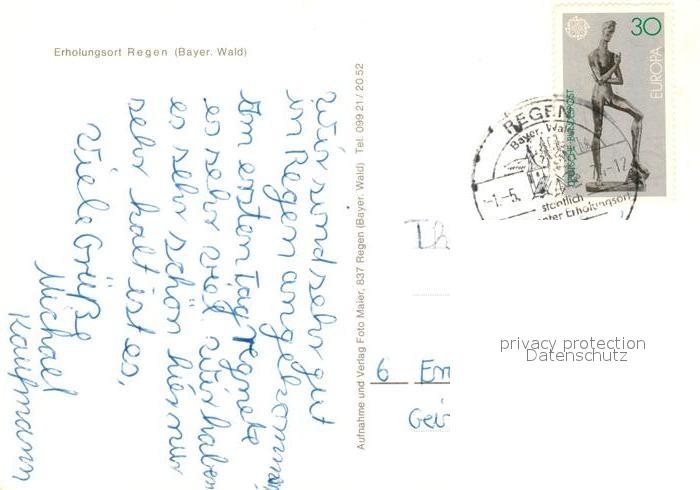 Erholungsort Regen (Bayer. Wald)
Wir sind sehr gut
in Regen angekommen
Am ersten Tag regnete
es sehr viel. Wir haben
es sehr schön hier nur
sehr kalt ist es.
Viele Grüße
Michael
Kaufmann
Aufnahme und Verlag Foto Maier, 837 Regen (Bayer. Wald) Tel. 099 21 / 20 52
30
EUROPA
DEUTSCHE BUNDESPOST
REGEN
Bayer. Wald
-1.-5.
-12
staatlich
Erholungsort
Th
6 Em
Gei
privacy protection
Datenschutz